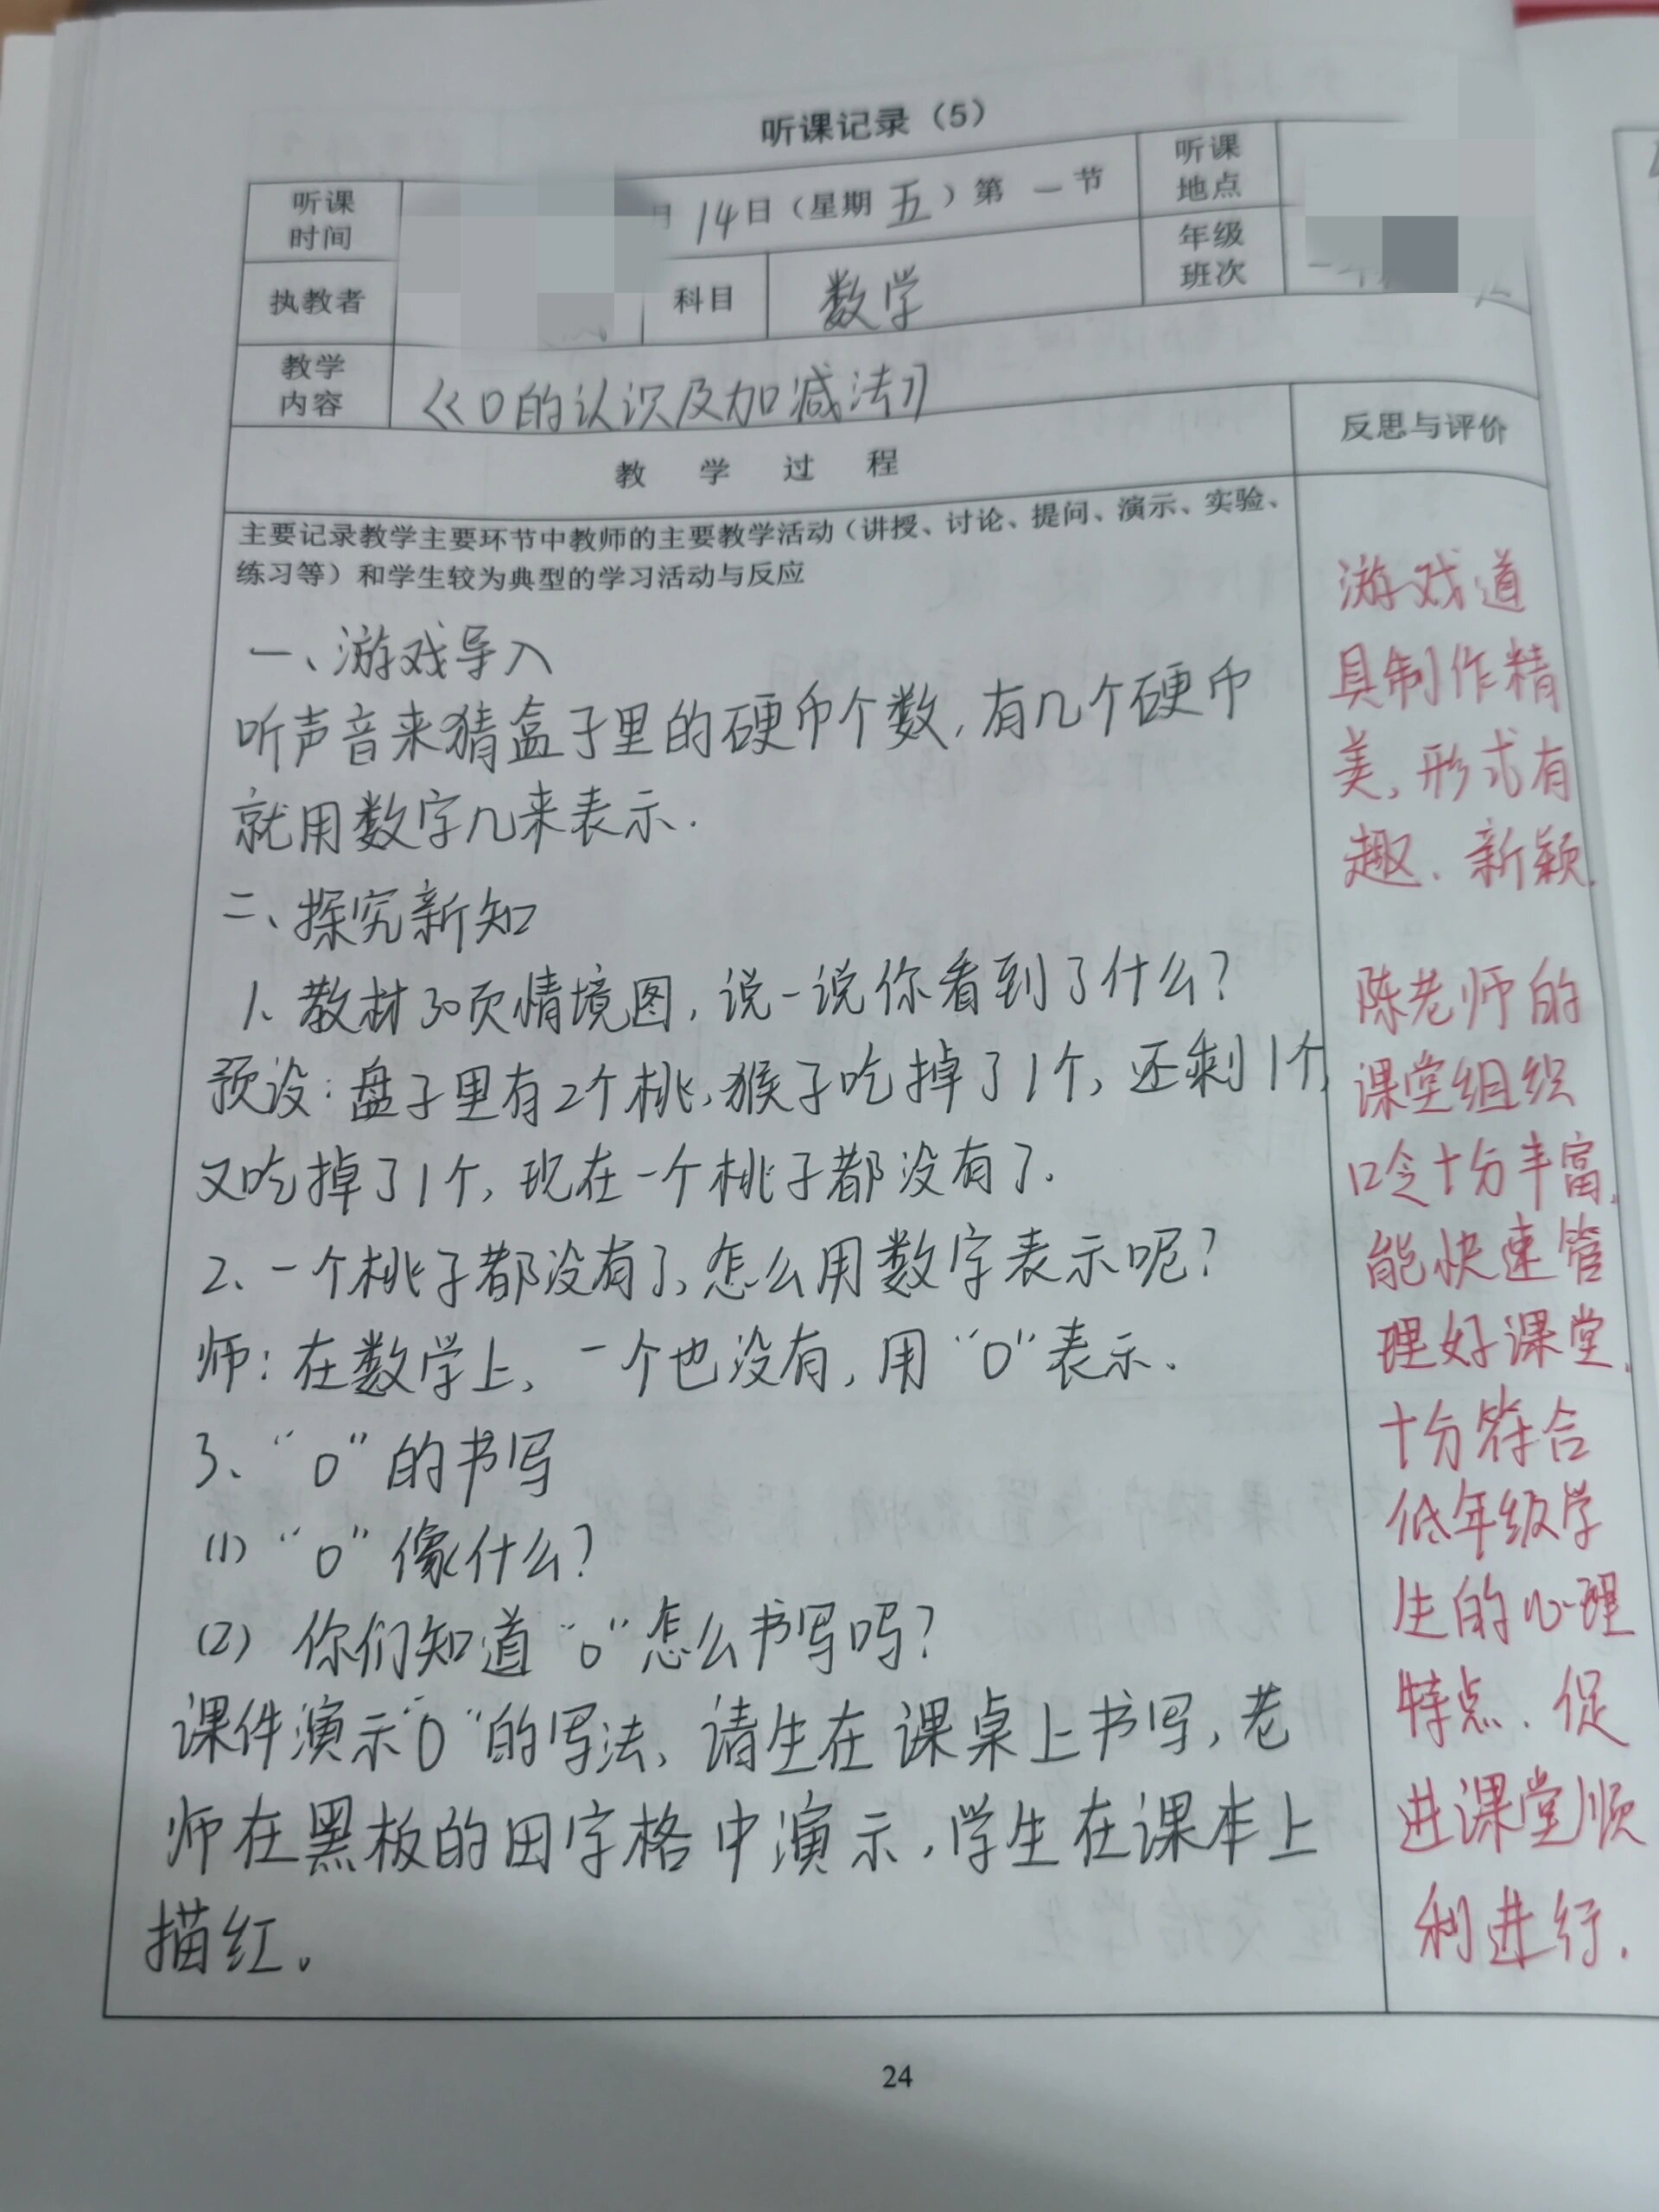 听课记录（5）
听课
时间
月 14日（星期 五）第 一 节
听课
地点
执教者
科目
数学
年级
班次
教学
内容
《0的认识及加减法》
教 学 过 程
反思与评价
主要记录教学主要环节中教师的主要教学活动（讲授、讨论、提问、演示、实验、
练习等）和学生较为典型的学习活动与反应
一、游戏导入
听声音来猜盒子里的硬币个数，有几个硬币
就用数字几来表示.
二、探究新知
1、教材30页情境图，说一说你看到了什么？
预设：盘子里有2个桃，猴子吃掉了1个，还剩1个，
又吃掉了1个，现在一个桃子都没有了.
2、一个桃子都没有了，怎么用数字表示呢？
师：在数学上，一个也没有，用“0”表示.
3、“0”的书写
(1)“0”像什么？
(2)你们知道“0”怎么书写吗？
课件演示“0”的写法，请生在课桌上书写，老
师在黑板的田字格中演示，学生在课本上
描红。
游戏道
具制作精
美，形式有
趣、新颖.
陈老师的
课堂组织
口令十分丰富，
能快速管
理好课堂，
十分符合
低年级学
生的心理
特点，促
进课堂顺
利进行.
24